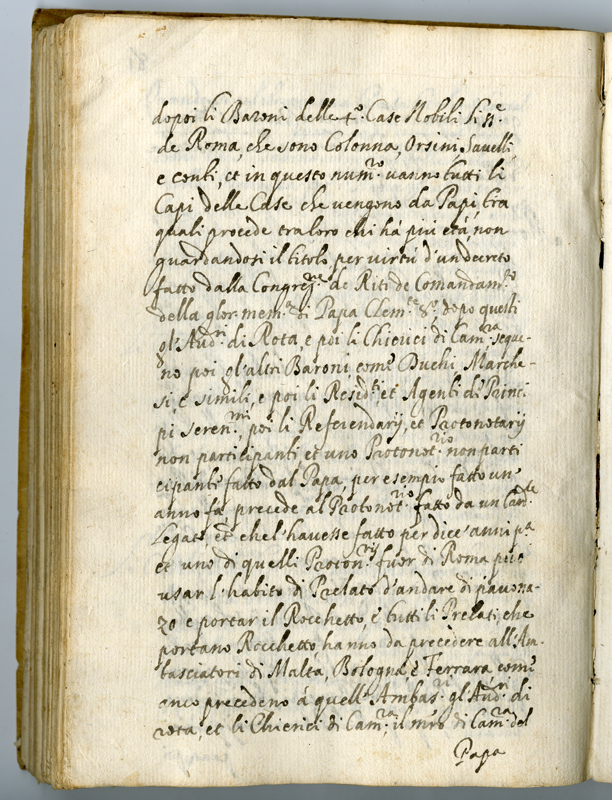 dopoi li Baroni delle 4.º Case Nobili
de Roma, che sono Colonna, Orsini, Savelli,
e conti, et in questo num.ro vanno tutti li
Capi delle Case che vengono da Papi tra
quali procede tra loro chi há piú etá, non
guardandosi il titolo per virtú d'un decreto
fatto dalla Congreg.ne de Riti de Comandam.to
della glor. mem.a di Papa Clem.te 8.º dopo questi
gl'Aud.ri di Rota, e poi li Chierici di Cam.ra segue-
no poi gl'altri Baroni, come Duchi, Marche-
si, e simili, e poi li Resid.ti, et Agenti di Princi
pi seren.mi poi li Referendarij, et Protonotarij
non participanti, et uno Protonot.rio non parti
cipante fatto dal Papa, per esempio fatto un'
anno fa precede al Protonot.rio fatto da un Car.le
Legato, et che l'havesse fatto per dice' anni p.a
et uno di quelli Proton.rij fuor di Roma può
usar l'habito di Prelato d'andare di pavona-
zo e portar il Rocchetto, è tutti li Prelati, che
portano Rocchetto hanno da precedere all'Am-
basciatori di Malta, Bologna, è Ferrara, come
anco precedeno á quell'Ambas.ri gl'Aud.ri di
rota, et li Chierici di Cam.ra, il mro di Cam.ra del
Papa